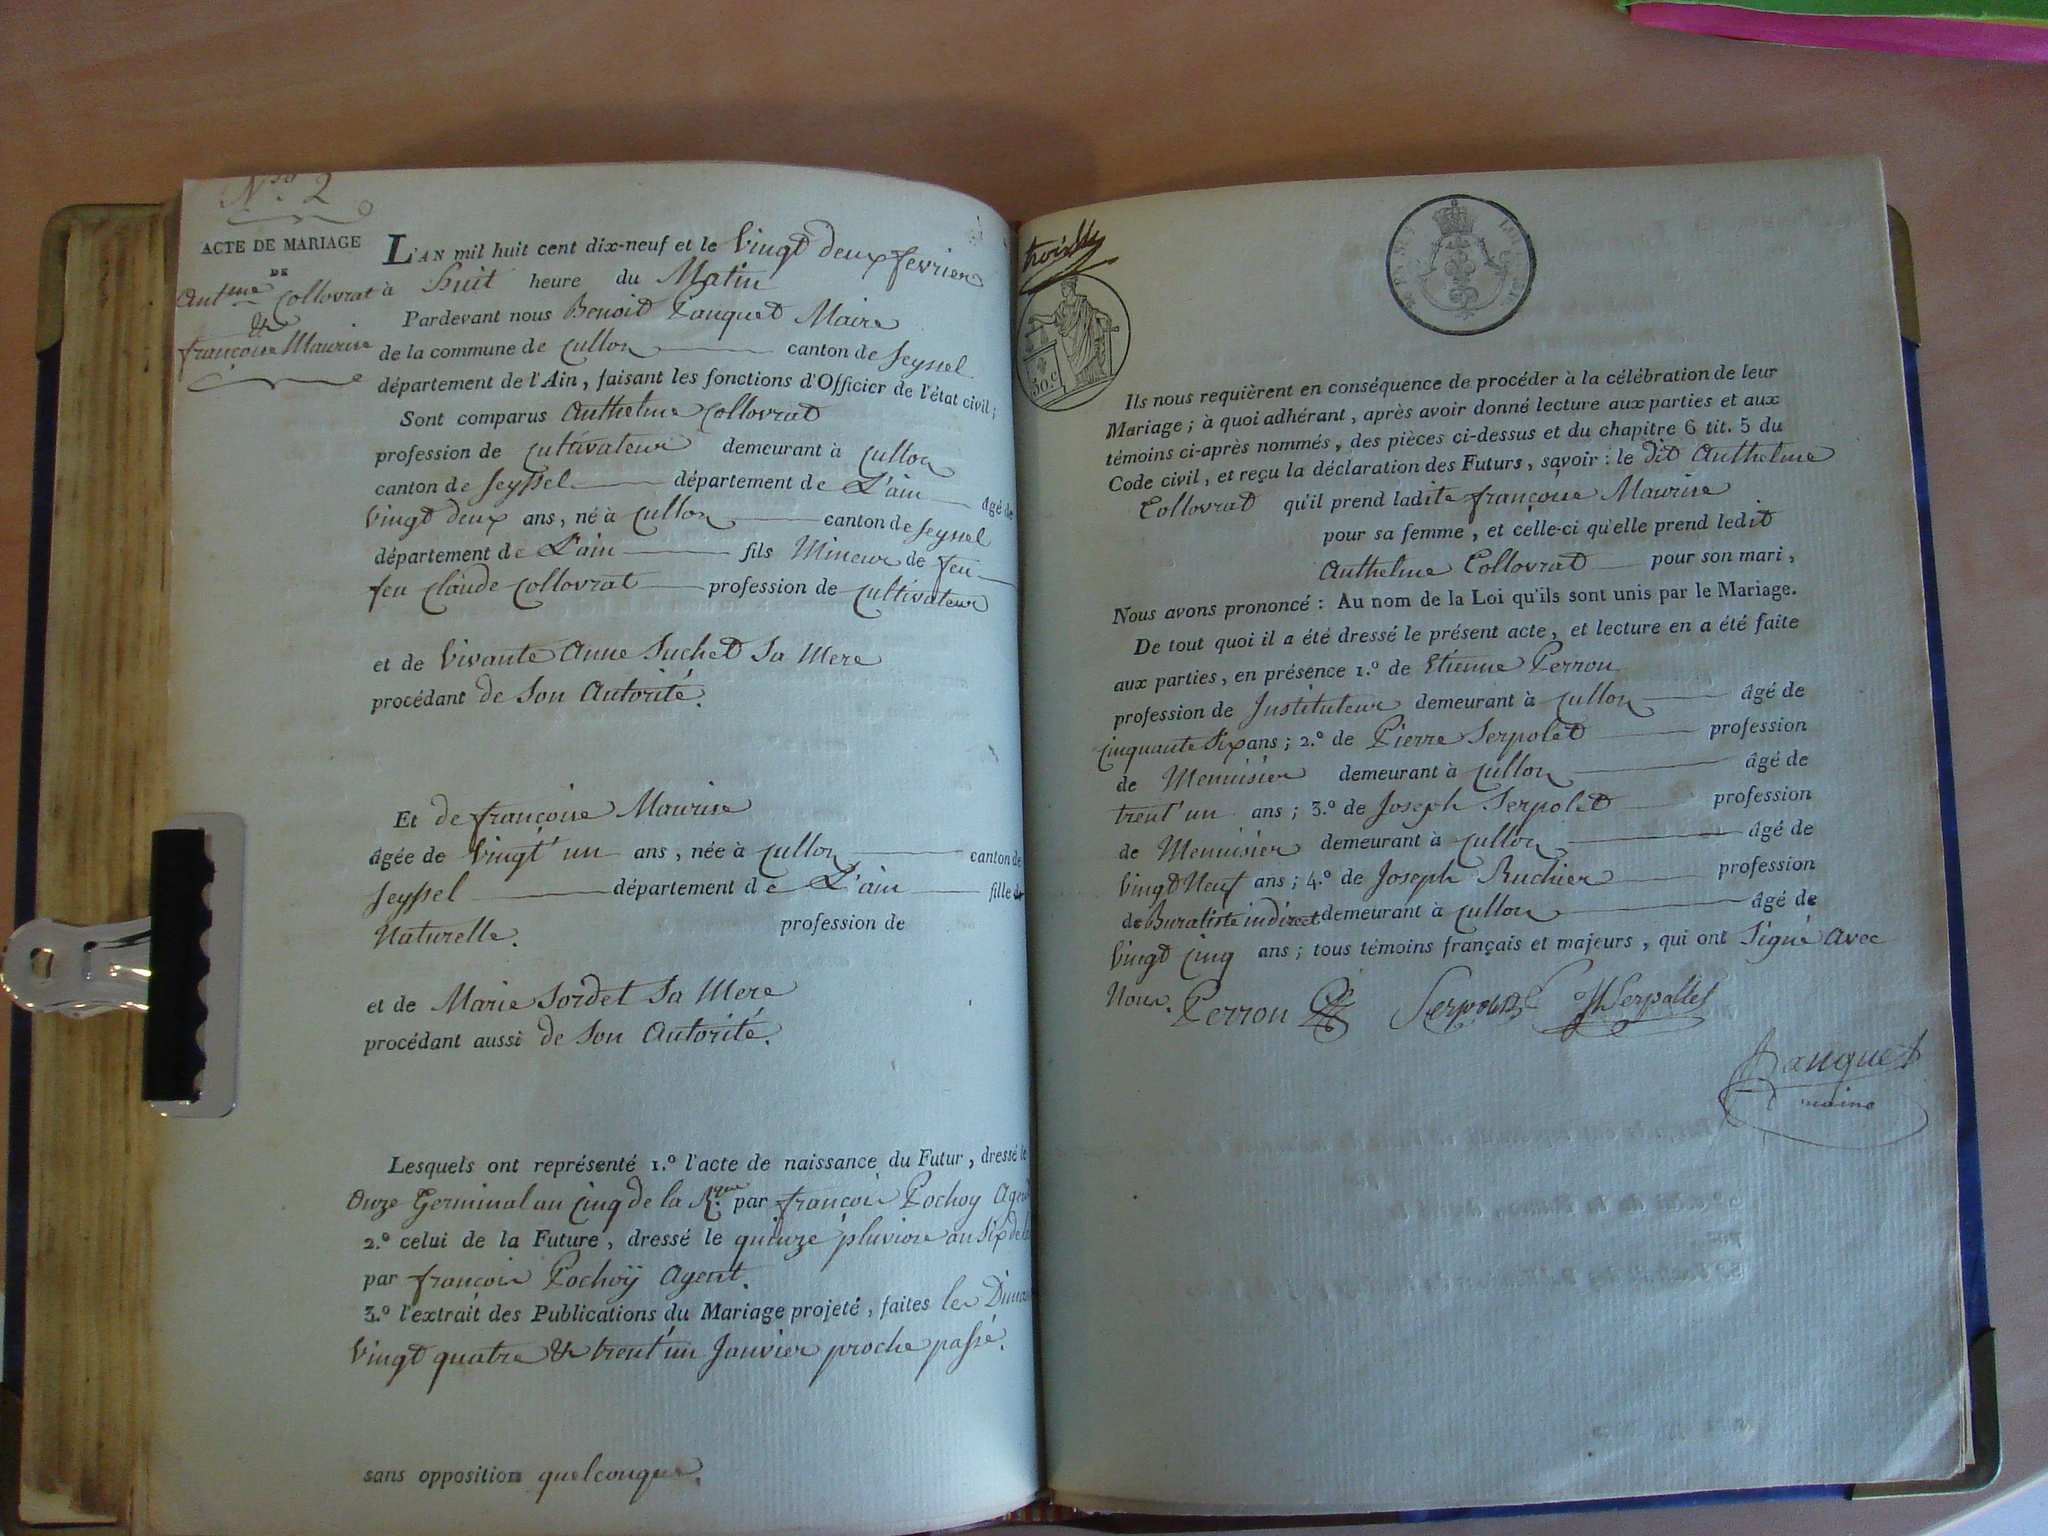 N.ro 2
ACTE DE MARIAGE
DE
Ant.me Collovrat
&
françoise Maurise
L'AN mil huit cent dix-neuf et le Vingt deux fevrier
à huit heure du Matin
Pardevant nous Benoit Panquet Maire
de la commune de Culloz canton de Seyssel
département de l'Ain, faisant les fonctions d'Officier de l'état civil;
Sont comparus Anthelme Collovrat
profession de Cultivateur demeurant à Culloz
canton de Seyssel département de L'ain âgé de
Vingt deux ans, né à Culloz canton de Seyssel
département de L'ain fils Mineur de feu
feu Claude Collovrat profession de Cultivateur
et de Vivante Anne Suchet Sa Mere
procédant de Son Autorité.
Et de françoise Maurise
âgée de Vingt'un ans, née à Culloz canton de
Seyssel département de L'ain fille de
Naturelle. profession de
et de Marie Sordet Sa Mere
procédant aussi de Son Autorité.
Lesquels ont représenté 1.º l'acte de naissance du Futur, dressé le
Onze Germinal an Cinq de la R.que par françois Pochoy Agent
2.º celui de la Future, dressé le quinze pluviose an Six de la
par françois Pochoÿ Agent.
3.º l'extrait des Publications du Mariage projeté, faites les
Vingt quatre & trent'un Janvier proche passé.
sans opposition quelconque.
30.c
Ils nous requièrent en conséquence de procéder à la célébration de leur
Mariage; à quoi adhérant, après avoir donné lecture aux parties et aux
témoins ci-après nommés, des pièces ci-dessus et du chapitre 6 tit. 5 du
Code civil, et reçu la déclaration des Futurs, savoir: le dit Anthelme
Collovrat qu'il prend ladite françoise Maurise
pour sa femme, et celle-ci qu'elle prend ledit
Anthelme Collovrat pour son mari,
Nous avons prononcé: Au nom de la Loi qu'ils sont unis par le Mariage.
De tout quoi il a été dressé le présent acte, et lecture en a été faite
aux parties, en présence 1.º de Etienne Perron
profession de Instituteur demeurant à Culloz âgé de
Cinquante Six ans; 2.º de Pierre Serpolet profession
de Menuisier demeurant à Culloz âgé de
trent'un ans; 3.º de Joseph Serpolet profession
de Menuisier demeurant à Culloz âgé de
Vingt Neuf ans; 4.º de Joseph Ruchier profession
de Buraliste indirect demeurant à Culloz âgé de
Vingt Cinq ans; tous témoins français et majeurs, qui ont Signé Avec
Nous. Perron Jh Serpollet
Panquet
maire